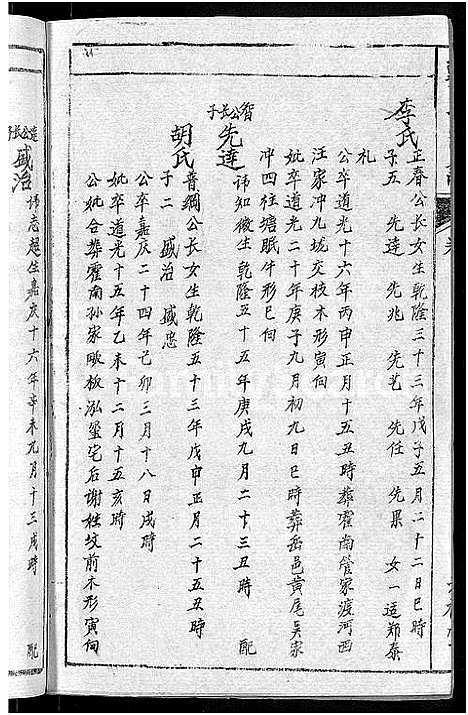 李氏 正春公长女生乾隆三十三年戊子五月二十二日巳时
子五 先達 先兆 先艺 先任 先果 女一适郑泰
礼
公卒道光十六年丙申正月十五丑時葬霍南管家渡河西
汪家冲九垅交枝木形寅向
妣卒道光二十年庚子九月初九日巳時葬岳邑黄尾吴家
冲四柱塘眠牛形巳向
智公长子
先達 讳知微生乾隆五十五年庚戌九月二十三丑時 配
胡氏 普綱公长女生乾隆五十三年戊申正月二十五丑時
子二 盛治 盛忠
公卒嘉庆二十四年己卯三月十八日戌時
妣卒道光十五年乙未十二月十五亥時
公妣合葬霍南孙家畈板泓堡宅后谢姓坟前木形寅向
達公长子
盛治 讳志超生嘉庆十六年辛未九月十三戌時 配